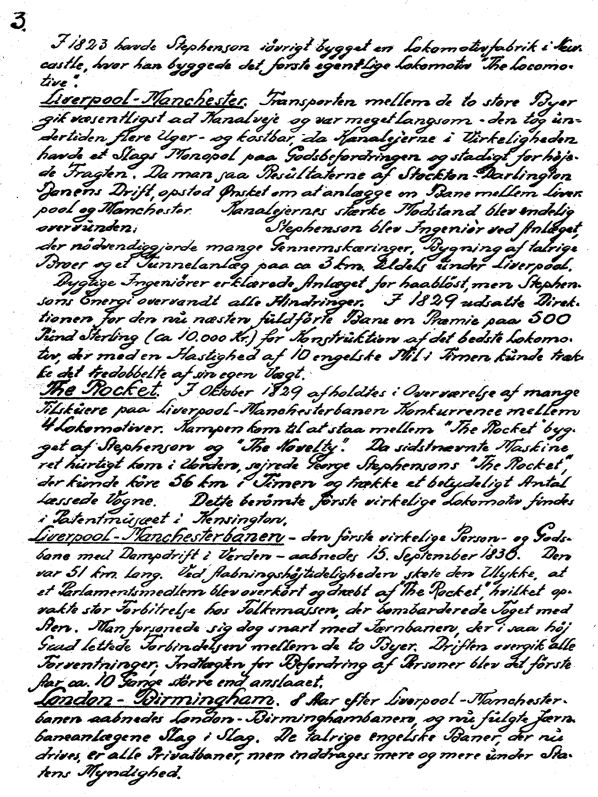 3.
I 1823 havde Stephenson iövrigt bygget en Lokomotivfabrik i New-
castle, hvor han byggede det förste egentlige Lokomotiv "The Locomo-
tive".
Liverpool-Manchester. Transporten mellem de to store Byer
gik væsentligst ad Kanalveje og var meget langsom - den tog un-
dertiden flere Uger - og kostbar, da Kanalejerne i Virkeligheden
havde et Slags Monopol paa Godsbefordringen og stadigt forhöje-
de Fragten. Da man saa Resultaterne af Stockton-Darlington
Banens Drift, opstod Ønsket om at anlægge en Bane mellem Liver-
pool og Manchester. Kanalejernes stærke Modstand blev endelig
overvunden; Stephenson blev Ingeniör ved Anlæget,
der nödvendiggjorde mange Gennemskæringer, Bygning af talrige
Broer og et Tunnelanlæg paa ca 3 km. Eldels under Liverpool.
Dygtige Ingeniörer erklærede Anlæget for haablöst, men Stephen-
sons Energi overvandt alle Hindringer. I 1829 udsatte Direk-
tionen for den nu næsten fuldförte Bane en Præmie paa 500
Pund Sterling (ca 10.000 Kr.) for Konstruktion af det bedste Lokomo-
tiv, der med en Hastighed af 10 engelske Mil i Timen kunde træk-
ke det tredobbelte af sin egen Vægt.
The Rocket. I Oktober 1829 afholdtes i Overværelse af mange
Tilskuere paa Liverpool-Manchesterbanen Konkurrence mellem
4 Lokomotiver. Kampen kom til at staa mellem "The Rocket" byg-
get af Stephenson og "The Novelty". Da sidstnævnte Maskine
ret hurtigt kom i Uorden, sejrede George Stephensons "The Rocket",
der kunde köre 56 km i Timen og trække et betydeligt Antal
læssede Vogne. Dette berömte förste virkelige Lokomotiv findes
i Patentmusæet i Kensington.
Liverpool-Manchesterbanen - den förste virkelige Person- og Gods-
bane med Dampdrift i Verden - aabnedes 15. September 1830. Den
var 51 km. lang. Ved Aabningshöjtideligheden skete den Ulykke, at
et Parlamentsmedlem blev overkört og dræbt af "The Rocket", hvilket op-
vakte stor Forbitrelse hos Folkemassen, der bombarderede Toget med
Sten. Man forsonede sig dog snart med Jærnbanen, der i saa höj
Grad lettede Forbindelsen mellem de to Byer. Driften overgik alle
Forventninger; Indtægten for Befordring af Personer blev det förste
Aar ca. 10 Gange större end anslaaet.
London - Birmingham. 8 Aar efter Liverpool-Manchester-
banen aabnedes London-Birminghambanen, og nu fulgte Jærn-
baneanlægene Slag i Slag. De talrige engelske Baner, der nu
drives, er alle Privatbaner, men inddrages mere og mere under Sta-
tens Myndighed.